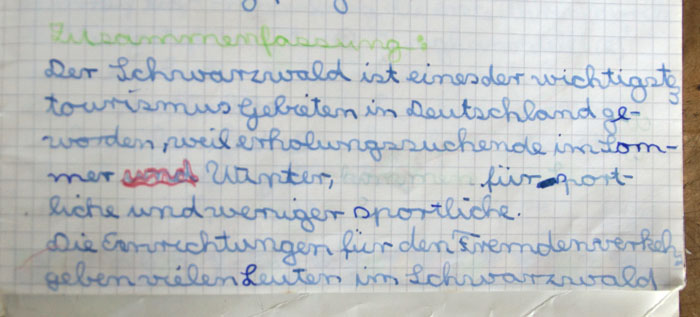 Zusammenfassung:
Der Schwarzwald ist eines der wichtigste
tourismus Gebieten in Deutschland ge-
worden, weil erholungssuchende im Som-
mer und Winter, für sport-
liche und weniger sportliche.
Die Einrichtungen für den Fremdenverkeh
geben vielen Leuten im Schwarzwald